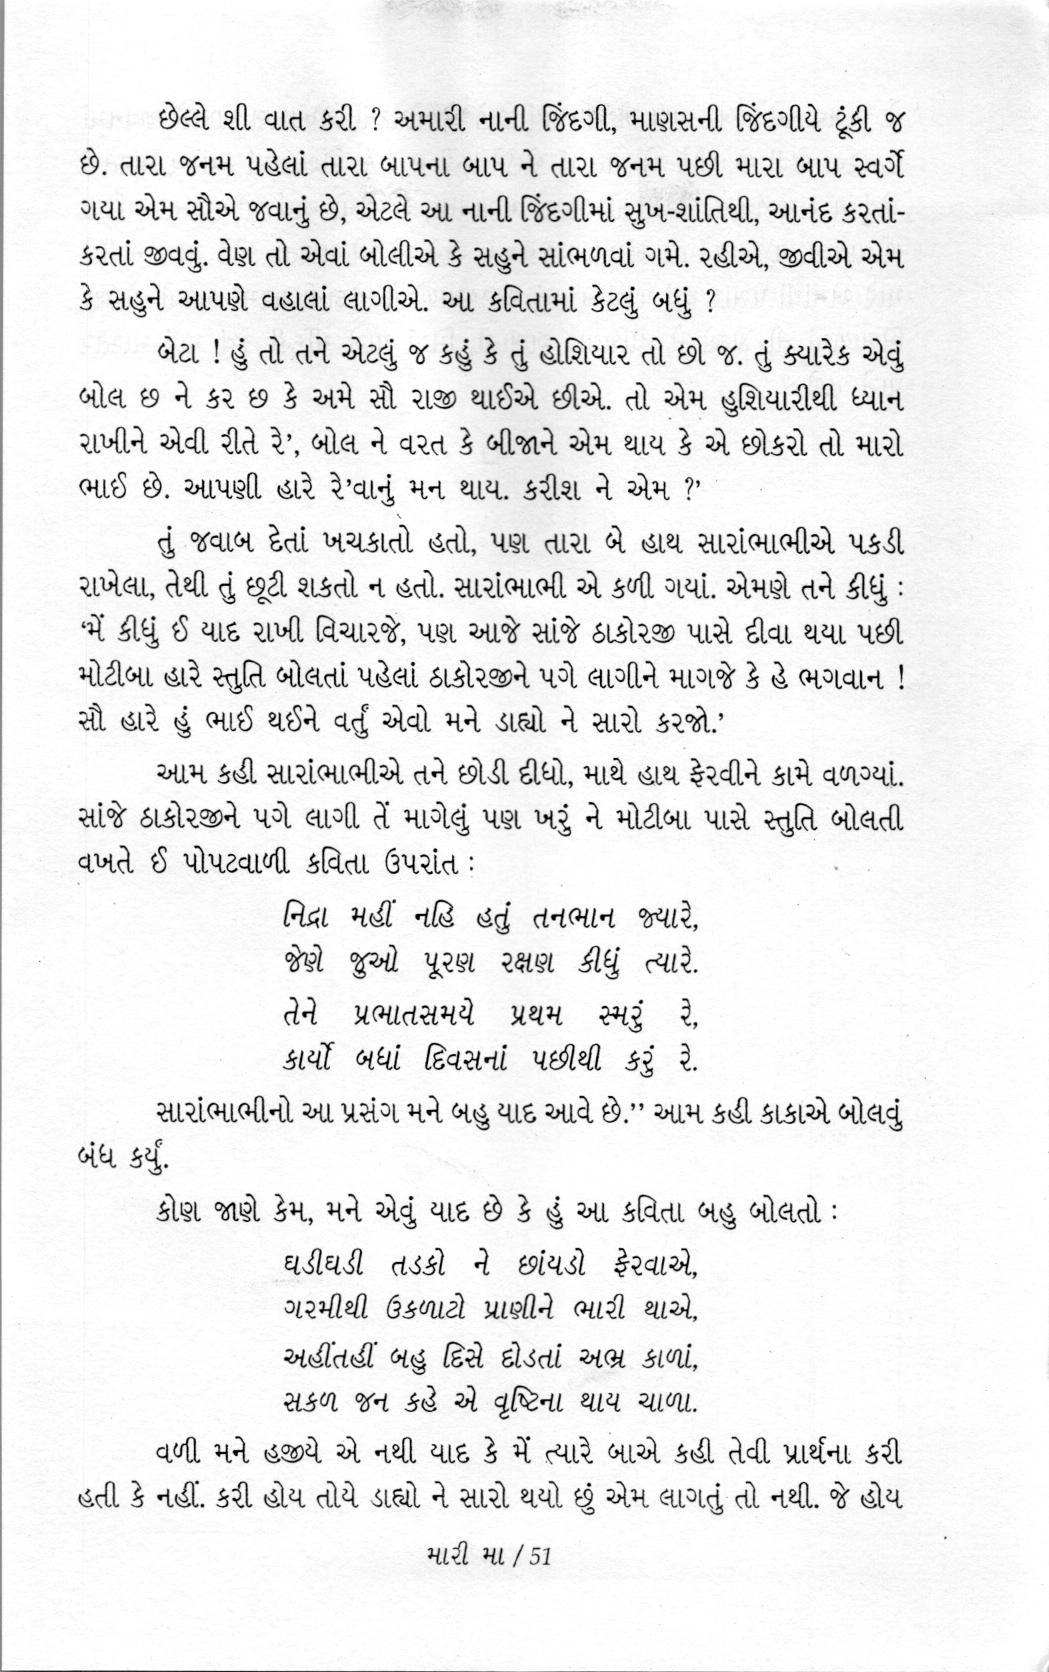 છેલ્લે શી વાત કરી ? અમારી નાની જિંદગી, માણસની જિંદગીયે ટૂંકી જ
છે. તારા જનમ પહેલાં તારા બાપના બાપ ને તારા જનમ પછી મારા બાપ સ્વર્ગે
ગયા એમ સૌએ જવાનું છે, એટલે આ નાની જિંદગીમાં સુખ-શાંતિથી, આનંદ કરતાં-
કરતાં જીવવું. વેણ તો એવાં બોલીએ કે સહુને સાંભળવાં ગમે. રહીએ, જીવીએ એમ
કે સહુને આપણે વહાલાં લાગીએ. આ કવિતામાં કેટલું બધું ?
બેટા ! હું તો તને એટલું જ કહું કે તું હોશિયાર તો છો જ. તું ક્યારેક એવું
બોલ છ ને કર છ કે અમે સૌ રાજી થાઈએ છીએ. તો એમ હુશિયારીથી ધ્યાન
રાખીને એવી રીતે રે’, બોલ ને વરત કે બીજાને એમ થાય કે એ છોકરો તો મારો
ભાઈ છે. આપણી હારે રે’વાનું મન થાય. કરીશ ને એમ ?’
તું જવાબ દેતાં ખચકાતો હતો, પણ તારા બે હાથ સારાંભાભીએ પકડી
રાખેલા, તેથી તું છૂટી શકતો ન હતો. સારાંભાભી એ કળી ગયાં. એમણે તને કીધું :
‘મેં કીધું ઈ યાદ રાખી વિચારજે, પણ આજે સાંજે ઠાકોરજી પાસે દીવા થયા પછી
મોટીબા હારે સ્તુતિ બોલતાં પહેલાં ઠાકોરજીને પગે લાગીને માગજે કે હે ભગવાન !
સૌ હારે હું ભાઈ થઈને વર્તું એવો મને ડાહ્યો ને સારો કરજો.’
આમ કહી સારાંભાભીએ તને છોડી દીધો, માથે હાથ ફેરવીને કામે વળગ્યાં.
સાંજે ઠાકોરજીને પગે લાગી તેં માગેલું પણ ખરું ને મોટીબા પાસે સ્તુતિ બોલતી
વખતે ઈ પોપટવાળી કવિતા ઉપરાંત :
નિદ્રા મહીં નહિ હતું તનભાન જ્યારે,
જેણે જુઓ પૂરણ રક્ષણ કીધું ત્યારે.
તેને પ્રભાતસમયે પ્રથમ સ્મરું રે,
કાર્યો બધાં દિવસનાં પછીથી કરું રે.
સારાંભાભીનો આ પ્રસંગ મને બહુ યાદ આવે છે.’’ આમ કહી કાકાએ બોલવું
બંધ કર્યું.
કોણ જાણે કેમ, મને એવું યાદ છે કે હું આ કવિતા બહુ બોલતો :
ઘડીઘડી તડકો ને છાંયડો ફેરવાએ,
ગરમીથી ઉકળાટો પ્રાણીને ભારી થાએ,
અહીંતહીં બહુ દિસે દોડતાં અભ્ર કાળાં,
સકળ જન કહે એ વૃષ્ટિના થાય ચાળા.
વળી મને હજીયે એ નથી યાદ કે મેં ત્યારે બાએ કહી તેવી પ્રાર્થના કરી
હતી કે નહીં. કરી હોય તોયે ડાહ્યો ને સારો થયો છું એમ લાગતું તો નથી. જે હોય
મારી મા / 51